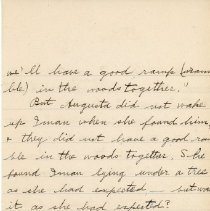 we'll have a good ramp (ram
ble) in the woods together."
But Augusta did not wake
up Iman when she found him
& they did not have a good ram
ble in the woods together. She
found Iman lying under a tree
as she had expected — but was
it as she had expected?